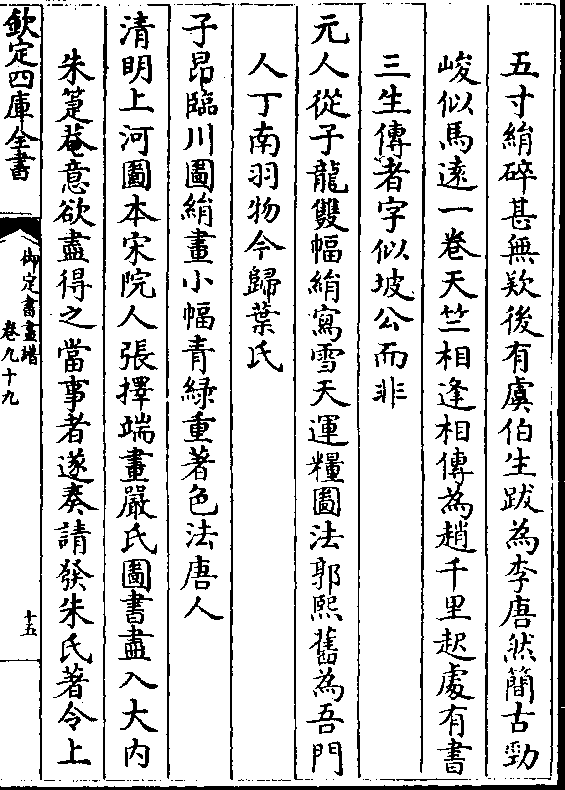 五寸絹碎甚無欵後有虞伯生跋為李唐然簡古勁
峻似馬遠一卷天竺相逢相傳為趙千里起處有書
三生傳者字似坡公而非
元人從子龍雙幅絹寫雪天運糧圖法郭熙舊為吾門
人丁南羽物今歸葉氏
子昂臨川圖絹畫小幅青綠重著色法唐人
清明上河圖本宋院人張擇端畫嚴氏圖書盡入大内
朱箑菴意欲盡得之當事者遂奏請發朱氏著令上
欽定四庫全書
御定書畫譜
卷九十九
十五